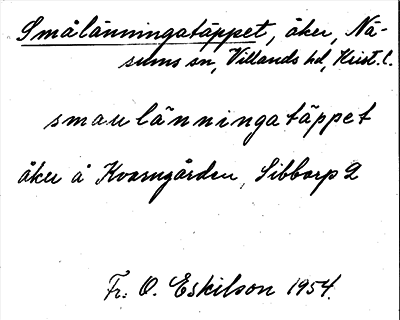 Smålänningatäppet, åker, Nä-
sums sn, Villands hd, Krist. l.
smaulänningatäppet
åker å Kvarngården, Sibborp 2
Fr. O. Eskilson 1954.